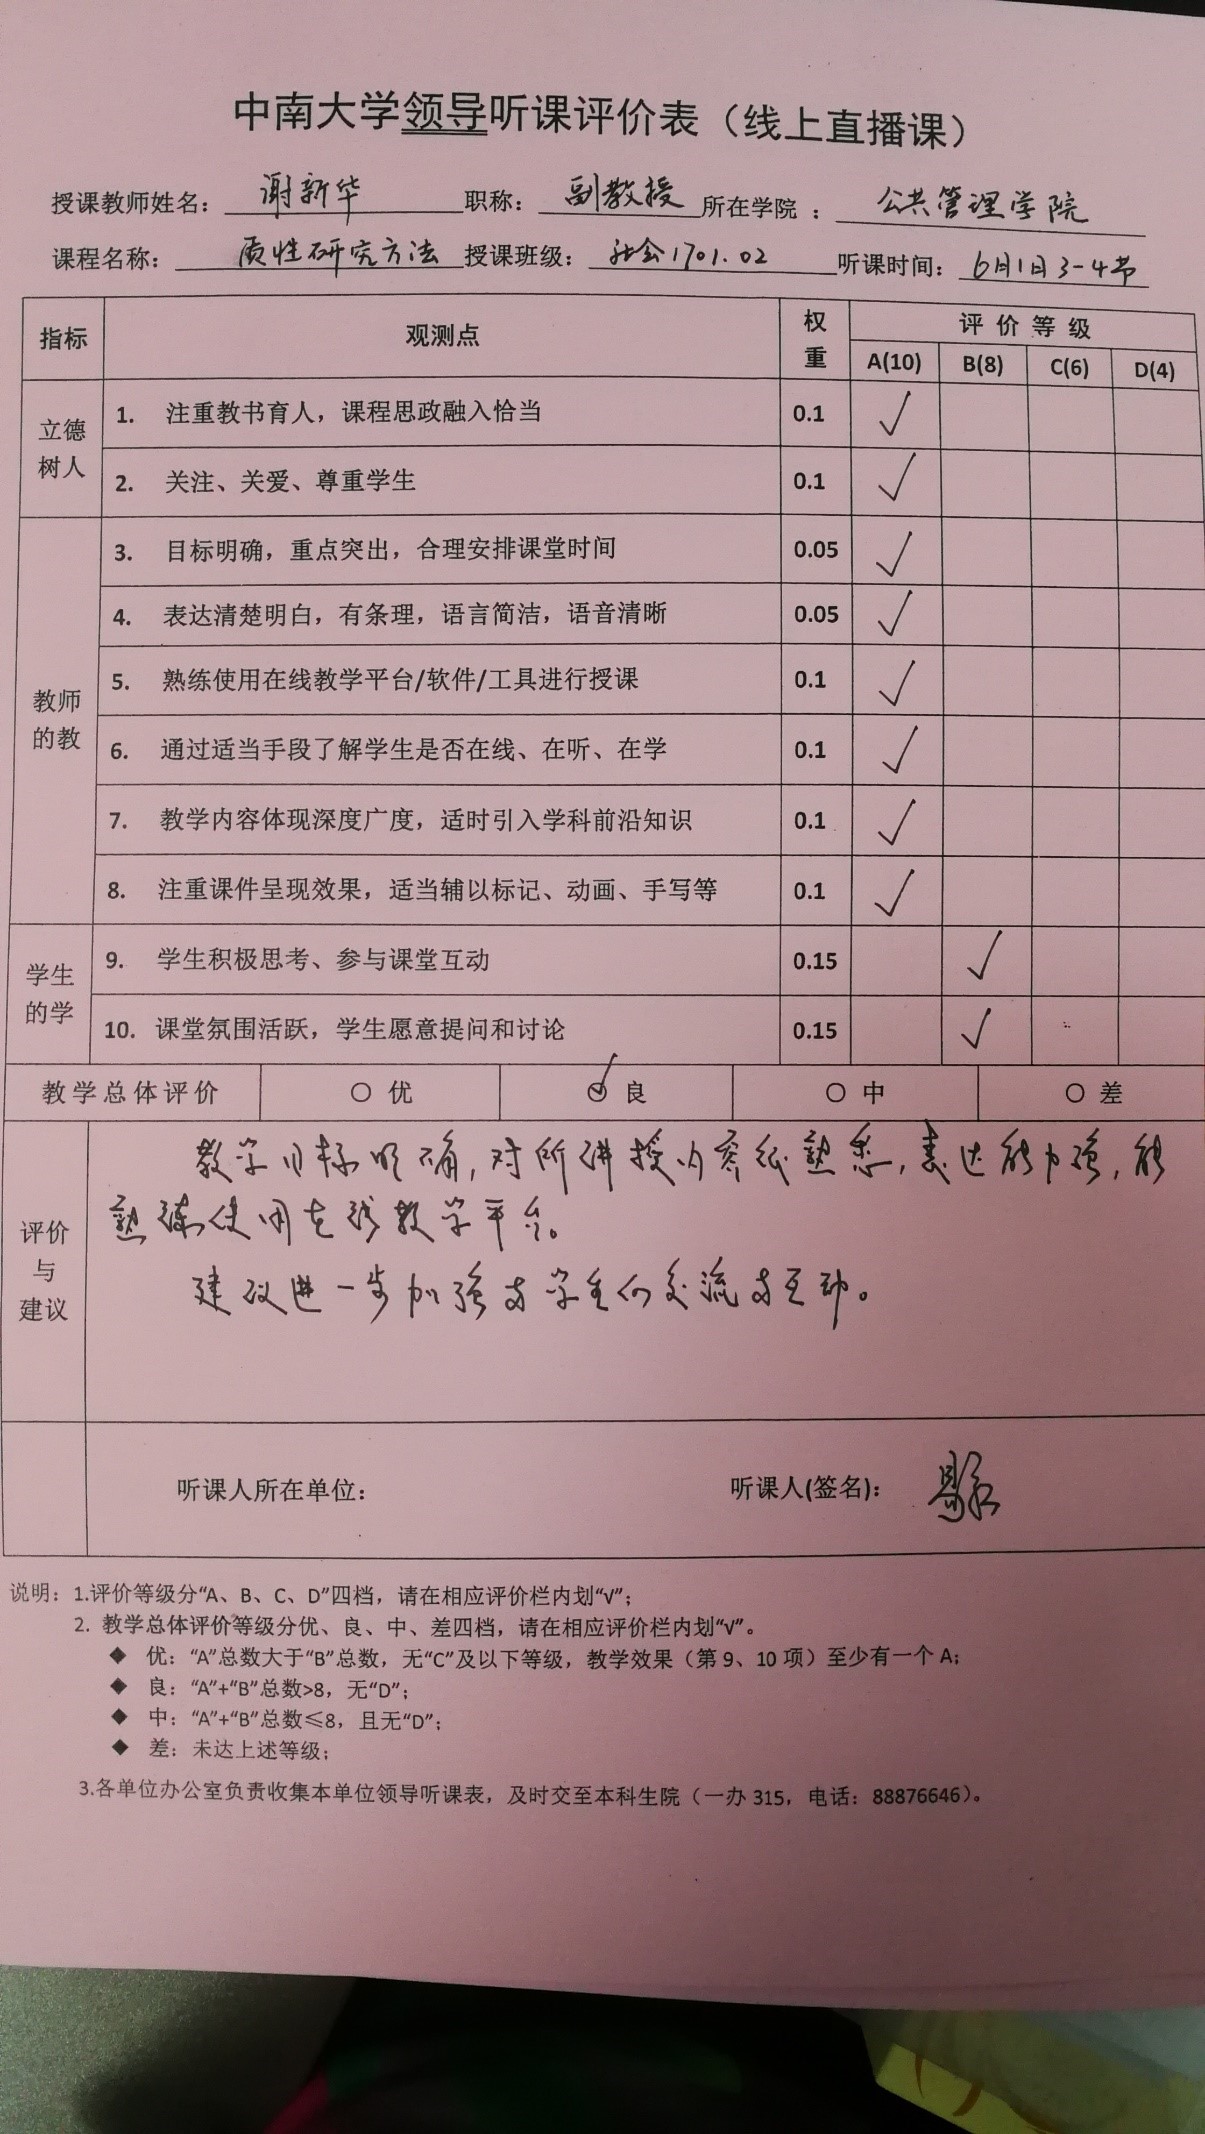 中南大学领导听课评价表（线上直播课）
授课教师姓名： 谢新华 职称： 副教授 所在学院： 公共管理学院
课程名称： 质性研究方法 授课班级： 社会1701.02 听课时间： 6月1日3-4节
指标 观测点 权重 评价等级
A(10) B(8) C(6) D(4)
立德树人
1. 注重教书育人，课程思政融入恰当 0.1 √
2. 关注、关爱、尊重学生 0.1 √
教师的教
3. 目标明确，重点突出，合理安排课堂时间 0.05 √
4. 表达清楚明白，有条理，语言简洁，语音清晰 0.05 √
5. 熟练使用在线教学平台/软件/工具进行授课 0.1 √
6. 通过适当手段了解学生是否在线、在听、在学 0.1 √
7. 教学内容体现深度广度，适时引入学科前沿知识 0.1 √
8. 注重课件呈现效果，适当辅以标记、动画、手写等 0.1 √
学生的学
9. 学生积极思考、参与课堂互动 0.15 √
10. 课堂氛围活跃，学生愿意提问和讨论 0.15 √
教学总体评价 ○ 优 ○√ 良 ○ 中 ○ 差
评价与建议
教学目标明确，对所讲授内容很熟悉，表达能力强，能
熟练使用在线教学平台。
建议进一步加强与学生的交流与互动。
听课人所在单位： 听课人(签名)：
说明：1.评价等级分“A、B、C、D”四档，请在相应评价栏内划“√”；
2. 教学总体评价等级分优、良、中、差四档，请在相应评价栏内划“√”。
◆ 优：“A”总数大于“B”总数，无“C”及以下等级，教学效果（第 9、10 项）至少有一个 A；
◆ 良：“A”+“B”总数>8，无“D”；
◆ 中：“A”+“B”总数≤8，且无“D”；
◆ 差：未达上述等级；
3.各单位办公室负责收集本单位领导听课表，及时交至本科生院（一办 315，电话：88876646）。